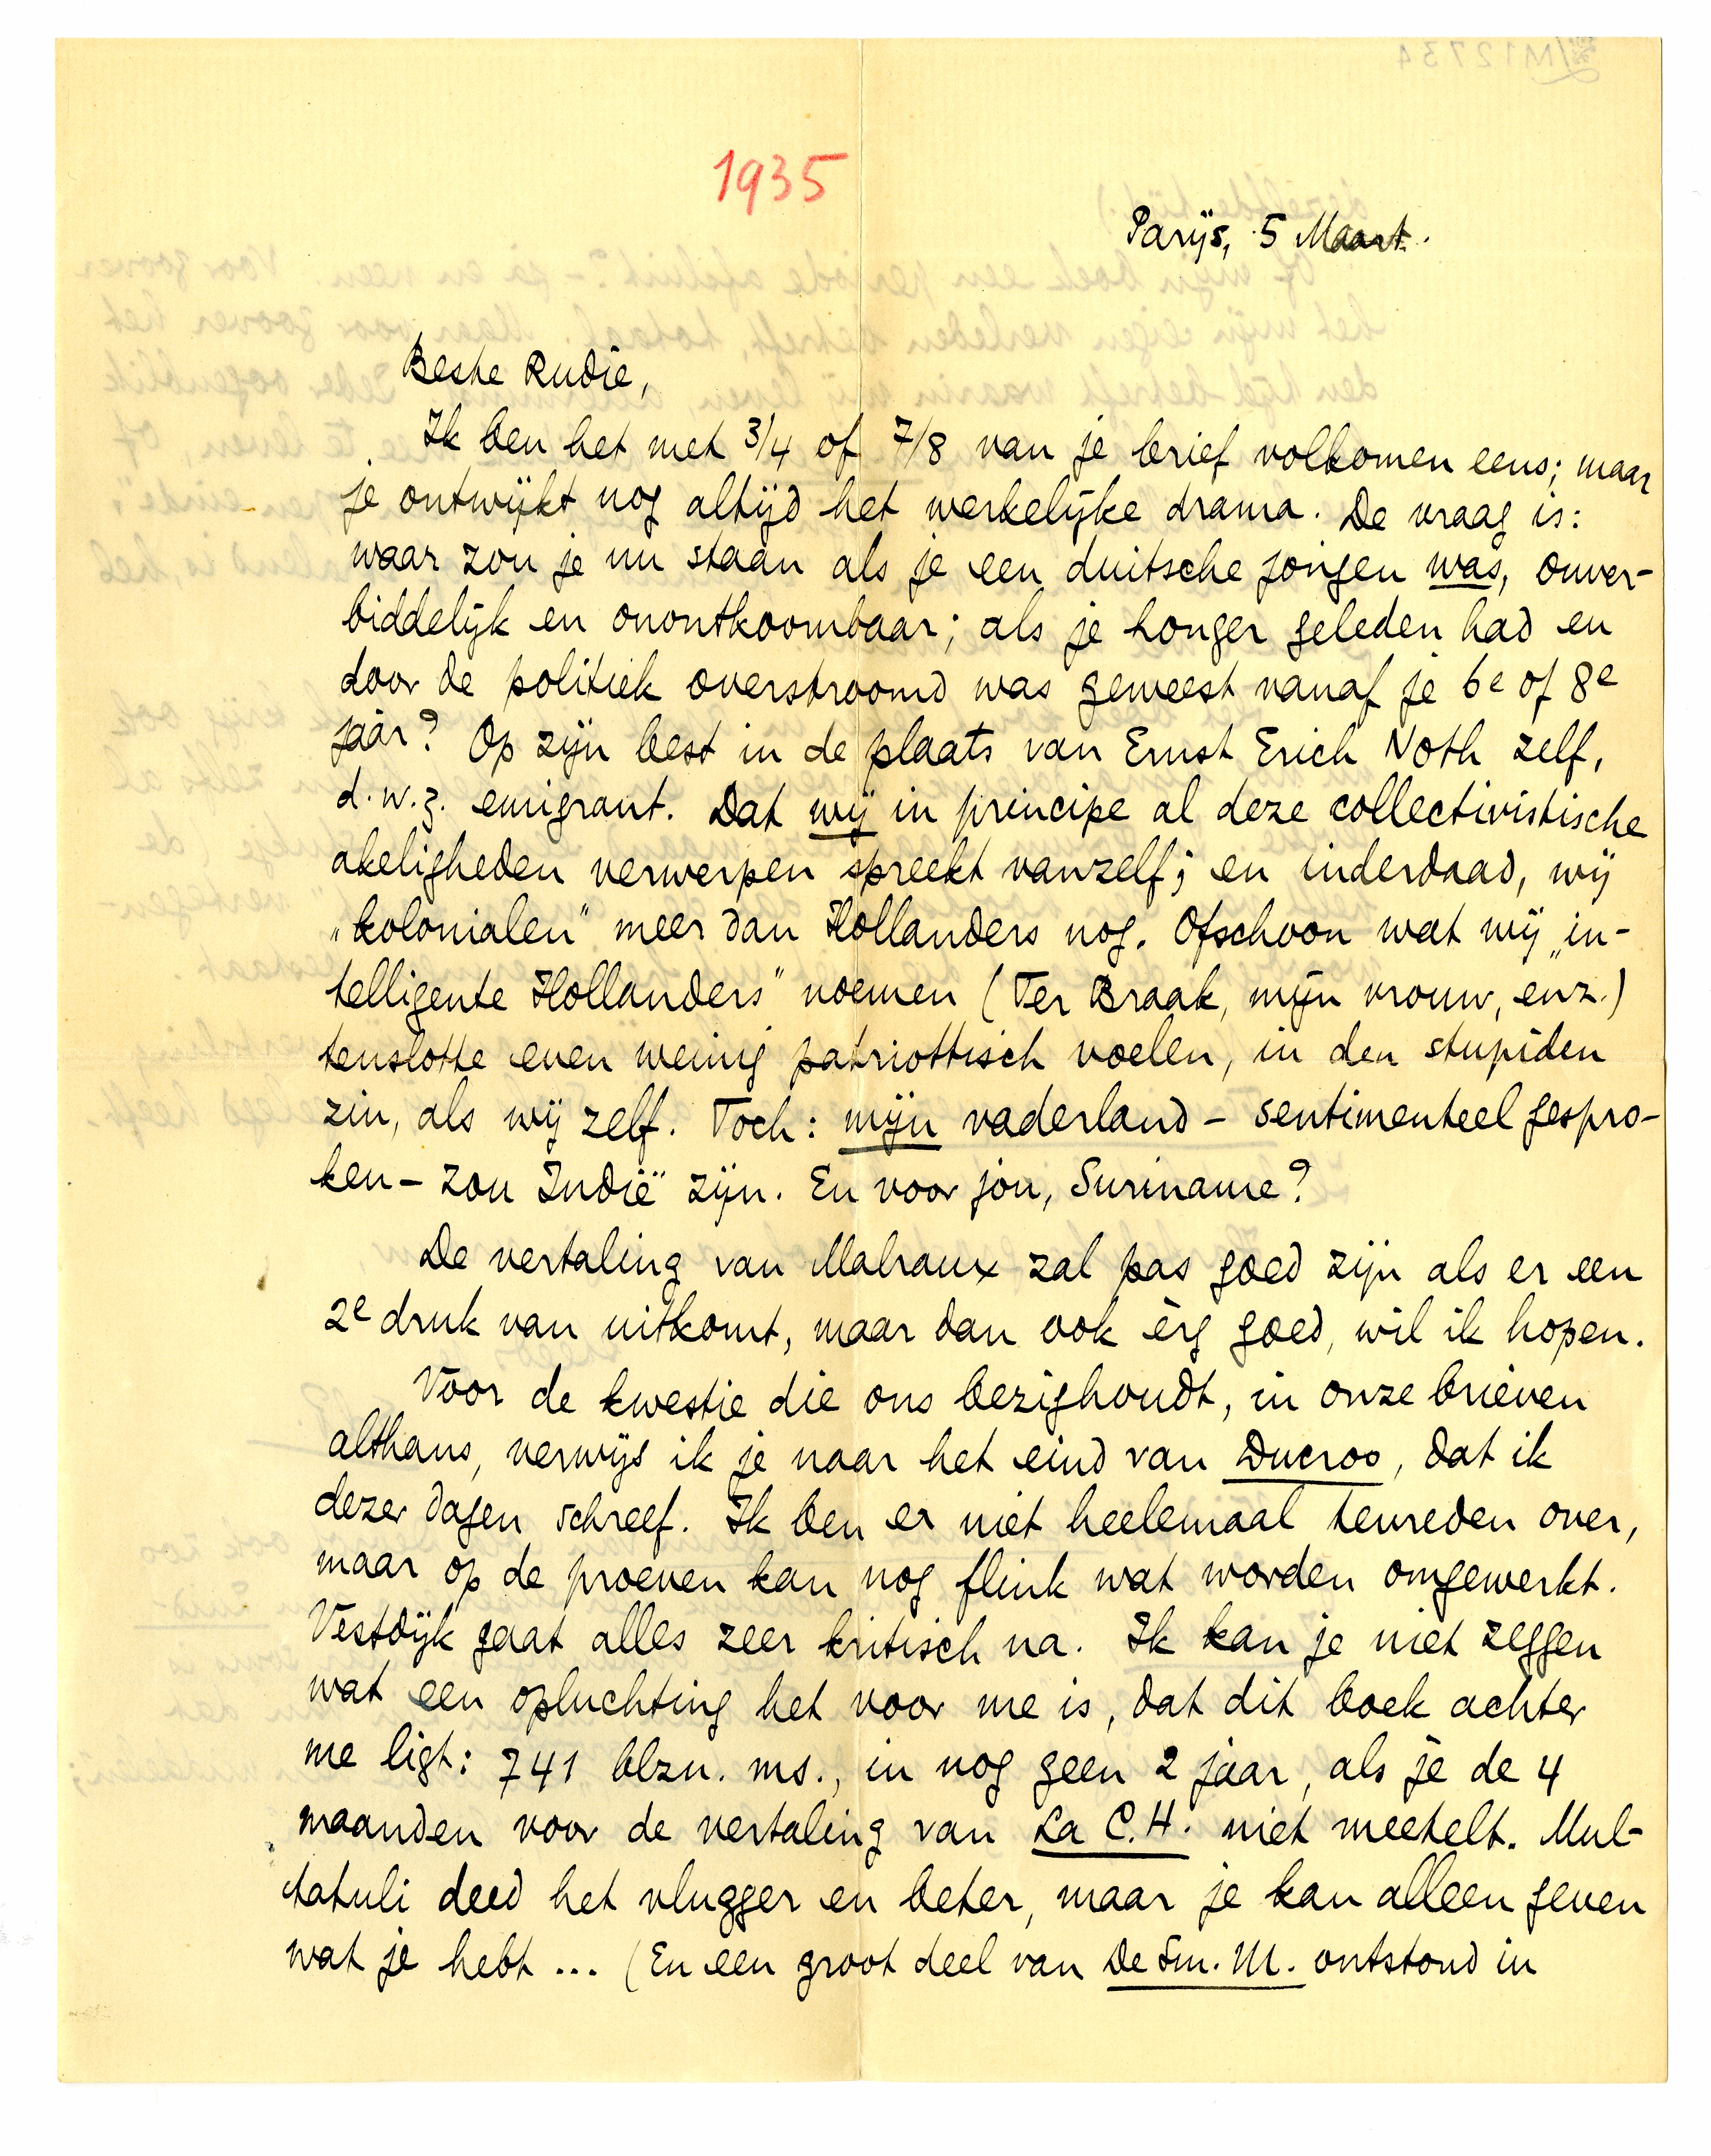 1935
Parijs, 5 Maart.
Beste Rudie,
Ik ben het met 3/4 of 7/8 van je brief volkomen eens; maar
je ontwijkt nog altijd het werkelijke drama. De vraag is:
waar zou je nu staan als je een duitsche jongen was, onver-
biddelijk en onontkoombaar; als je honger geleden had en
door de politiek overstroomd was geweest vanaf je 6e of 8e
jaar? Op zijn best in de plaats van Ernst Erich Noth zelf,
d.w.z. emigrant. Dat wij in principe al deze collectivistische
akeligheden verwerpen spreekt vanzelf; en inderdaad, wij
„kolonialen" meer dan Hollanders nog. Ofschoon wat wij „in-
telligente Hollanders" noemen (Ter Braak, mijn vrouw, enz.)
tenslotte even weinig patriottisch voelen, in den stupiden
zin, als wij zelf. Toch: mijn vaderland – sentimenteel gespro-
ken – zou Indië zijn. En voor jou, Suriname?
De vertaling van Malraux zal pas goed zijn als er een
2e druk van uitkomt, maar dan ook èrg goed, wil ik hopen.
Voor de kwestie die ons bezighoudt, in onze brieven
althans, verwijs ik je naar het eind van Ducroo, dat ik
dezer dagen schreef. Ik ben er niet heelemaal tevreden over,
maar op de proeven kan nog flink wat worden omgewerkt.
Vestdijk gaat alles zeer kritisch na. Ik kan je niet zeggen
wat een opluchting het voor me is, dat dit boek achter
me ligt: 741 blzn. ms., in nog geen 2 jaar, als je de 4
maanden voor de vertaling van La C.H. niet meetelt. Mul-
tatuli deed het vlugger en beter, maar je kan alleen geven
wat je hebt ... (En een groot deel van De Sm. M. ontstond in